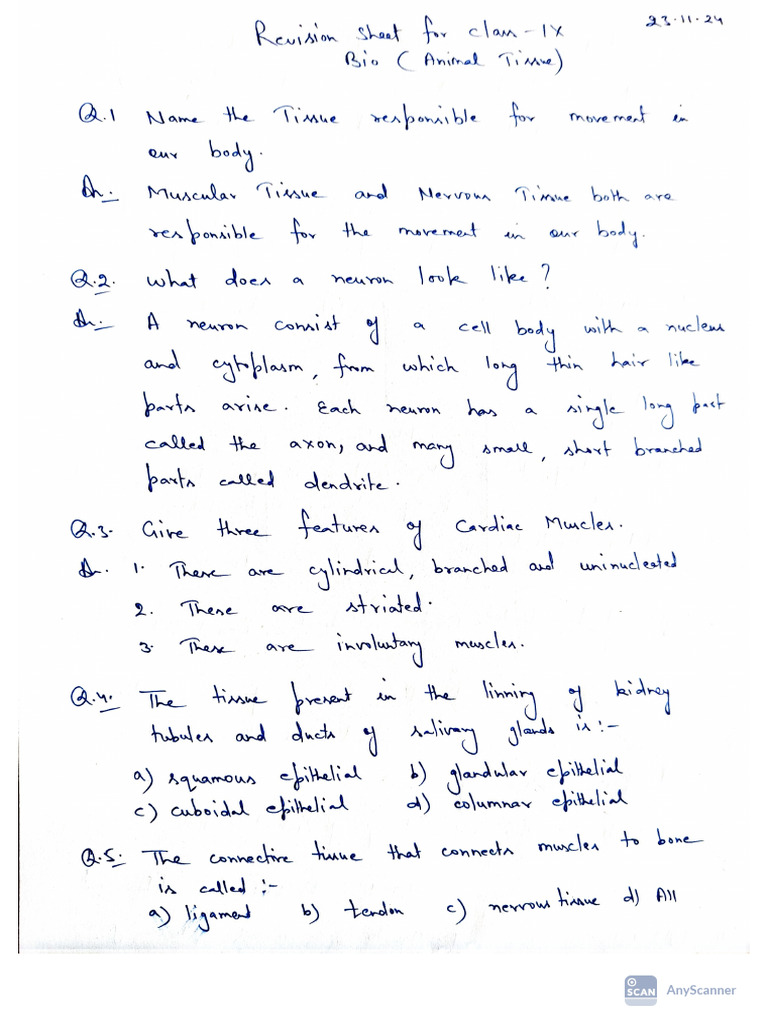 Revision Sheet for class - IX
23.11.24
Bio (Animal Tissue)
Q.1 Name the Tissue responsible for movement in
our body.
An. Muscular Tissue and Nervous Tissue both are
responsible for the movement in our body.
Q.2. What does a neuron look like?
An. A neuron consist of a cell body with a nucleus
and cytoplasm, from which long thin hair like
parts arise. Each neuron has a single long part
called the axon, and many small, short branched
parts called dendrite.
Q.3. Give three features of Cardiac Muscles.
An. 1. These are cylindrical, branched and uninucleated
2. These are striated.
3. These are involuntary muscles.
Q.4. The tissue present in the linning of kidney
tubules and ducts of salivary glands is :-
a) squamous epithelial b) glandular epithelial
c) cuboidal epithelial d) columnar epithelial
Q.5. The connective tissue that connects muscles to bone
is called :-
a) ligament b) tendon c) nervous tissue d) All
SCAN AnyScanner